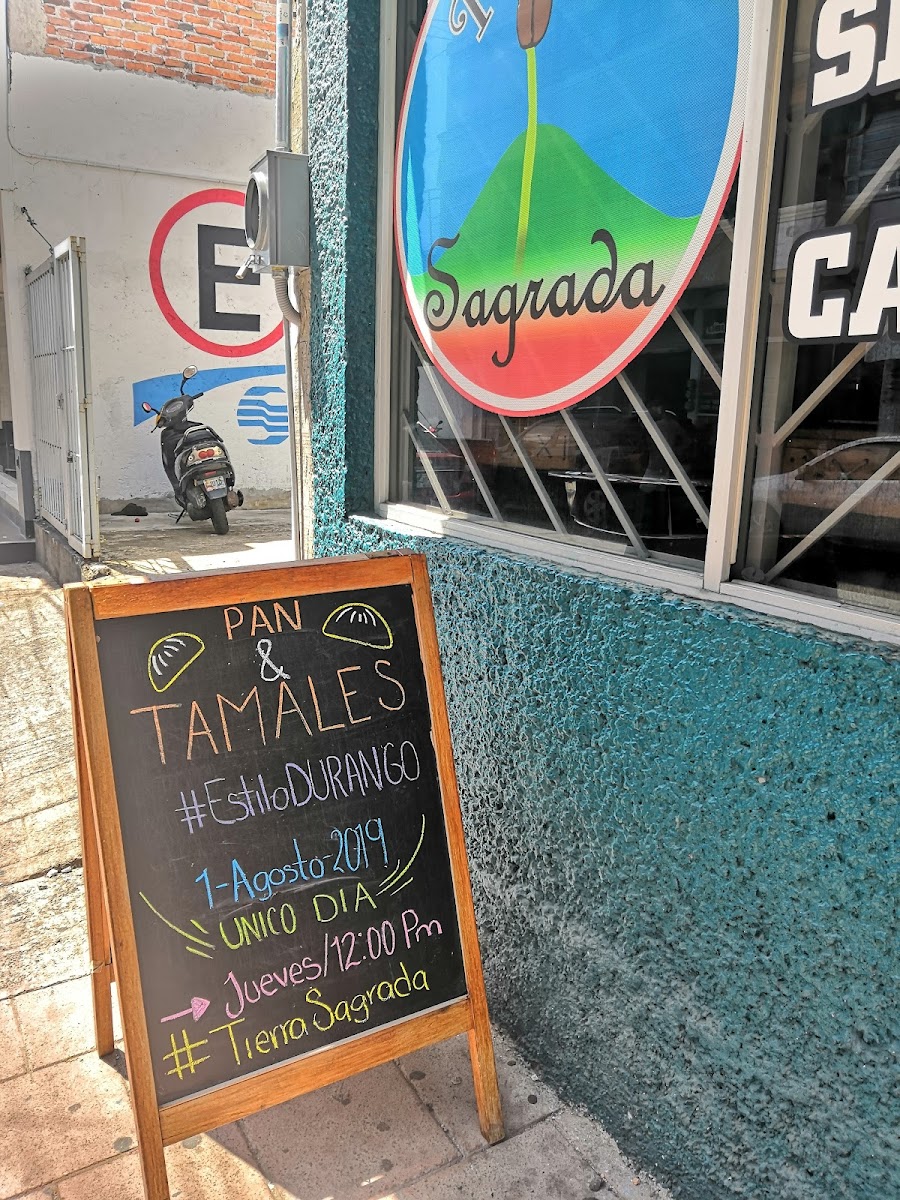 Sagrada
E
PAN
&
TAMALES
#EstiloDURANGO
1-Agosto-2019
UNICO DIA
Jueves/12:00 Pm
#TierraSagrada